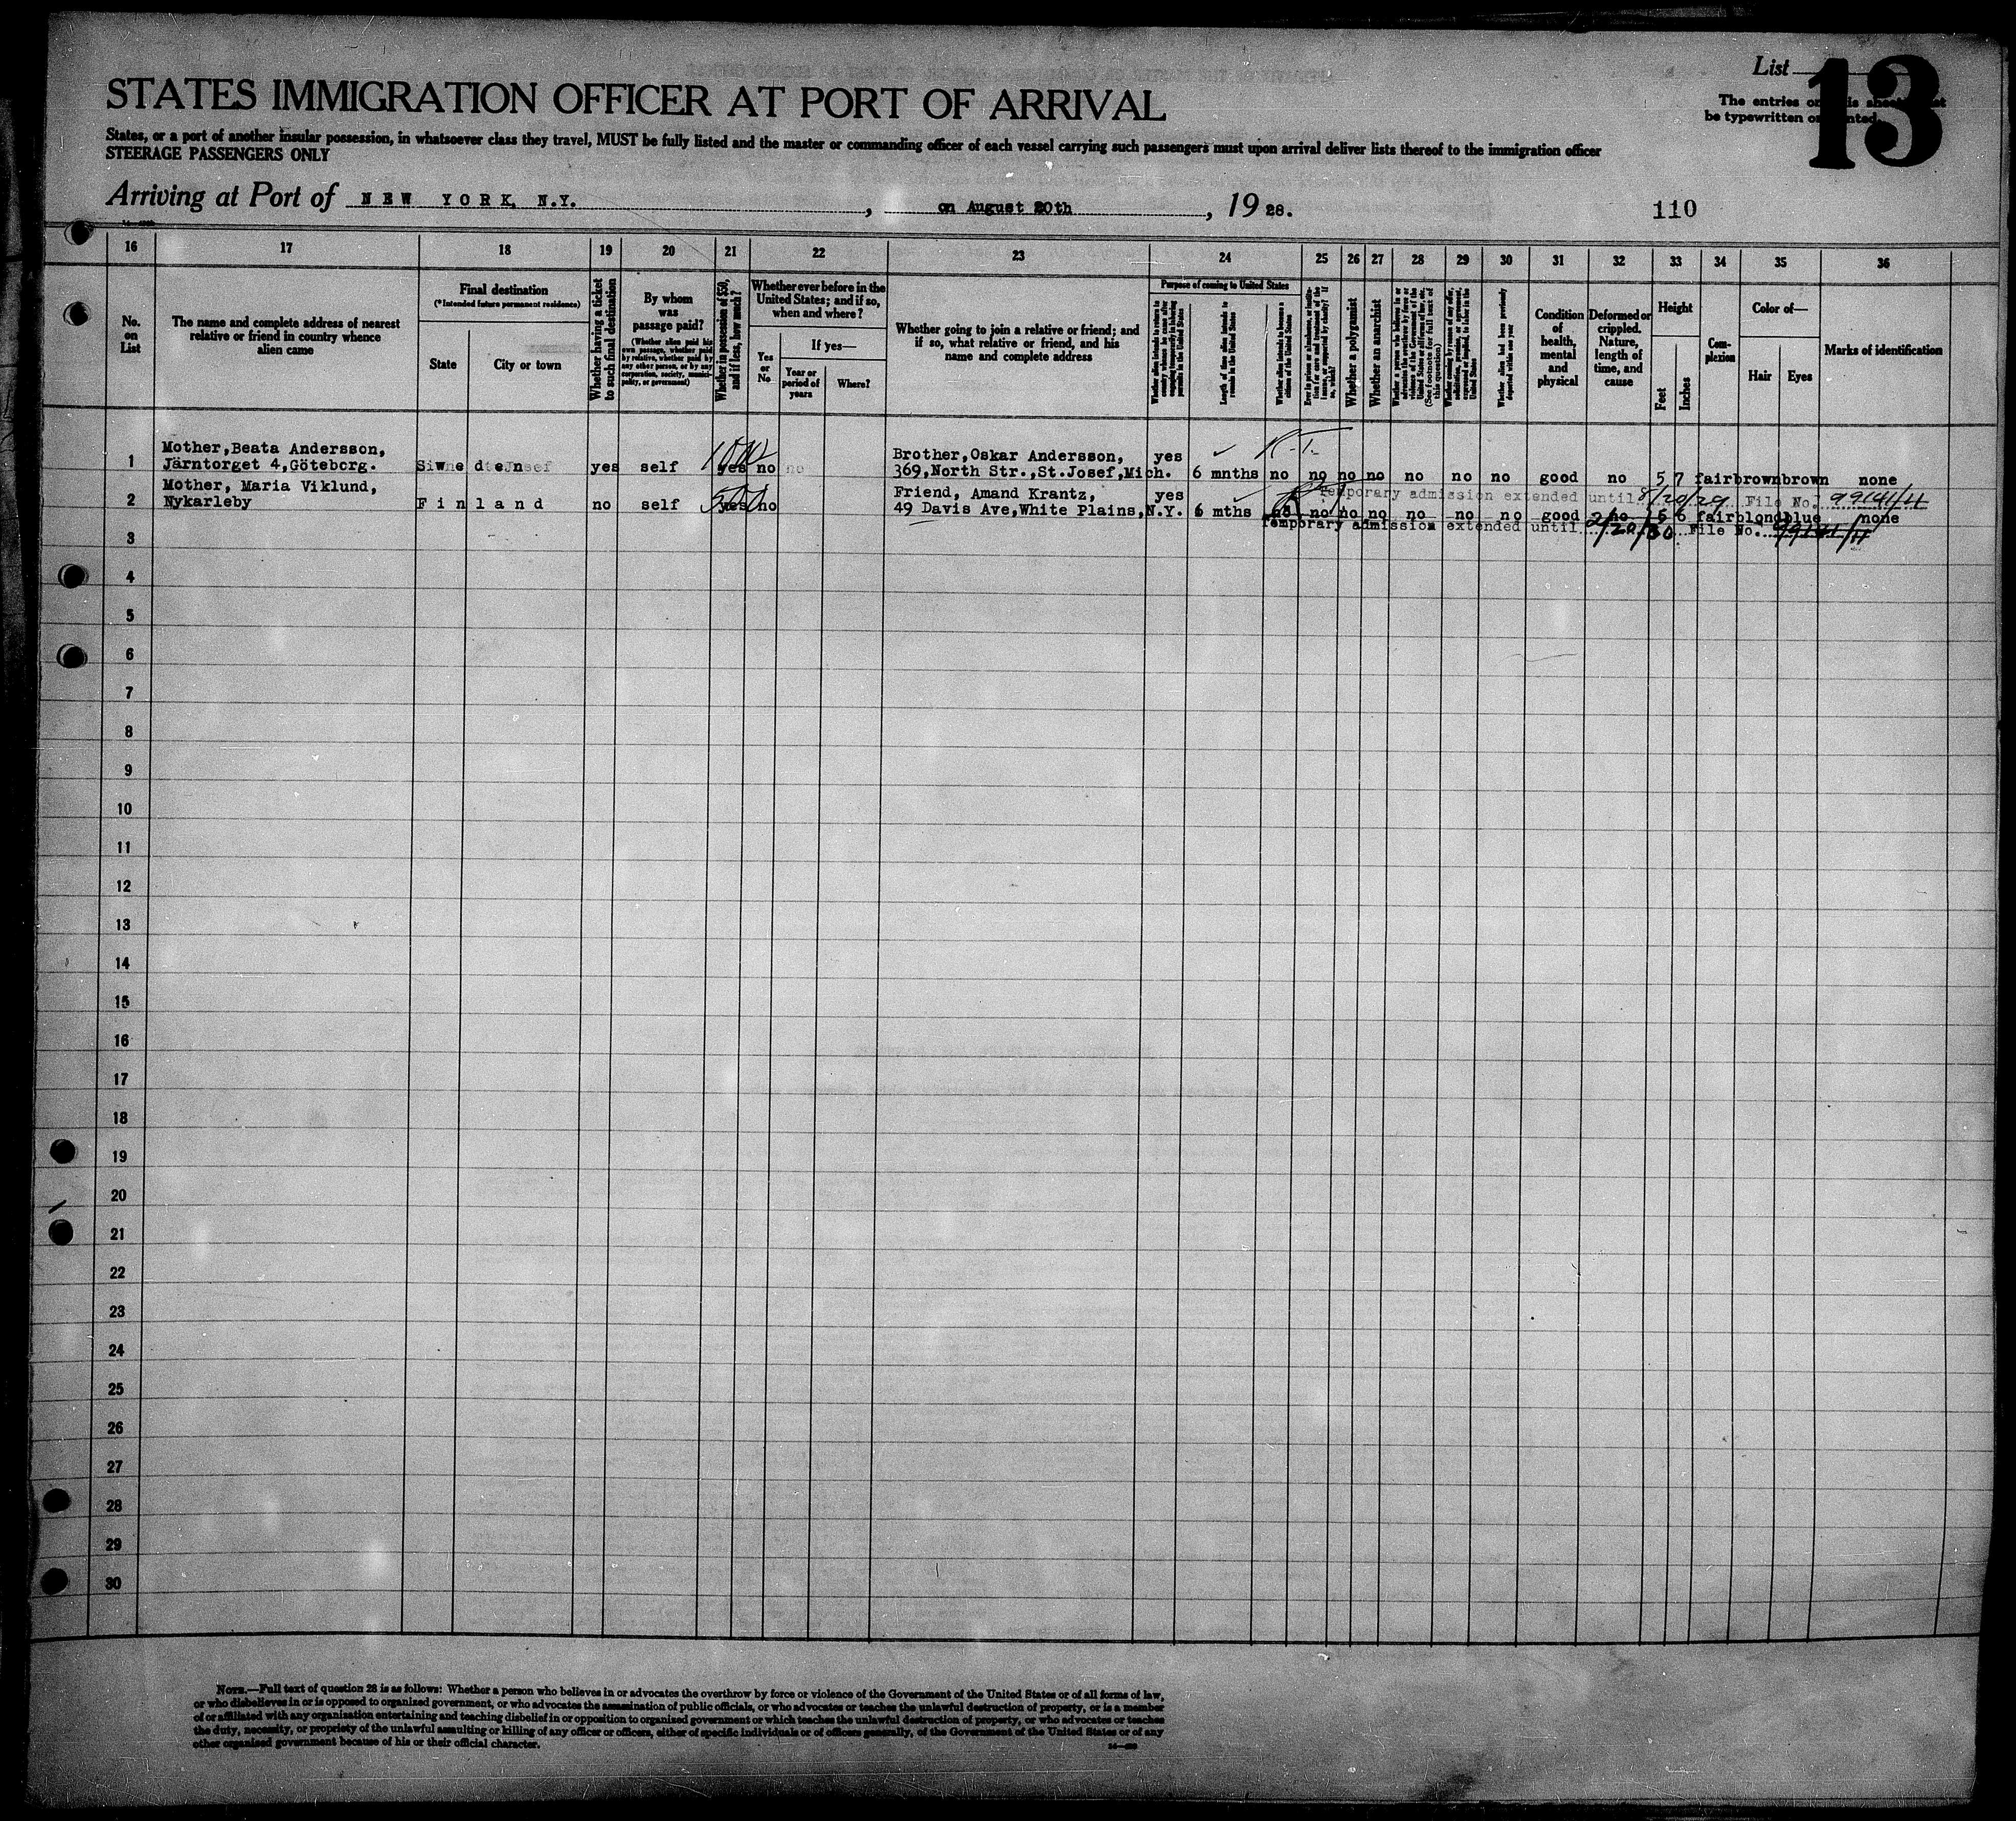 List
13
The entries on this sheet must
be typewritten or printed.
STATES IMMIGRATION OFFICER AT PORT OF ARRIVAL
States, or a port of another insular possession, in whatsoever class they travel, MUST be fully listed and the master or commanding officer of each vessel carrying such passengers must upon arrival deliver lists thereof to the immigration officer
STEERAGE PASSENGERS ONLY
Arriving at Port of NEW YORK, N.Y. , on August 20th , 19 28.
110
16 17 18 19 20 21 22 23 24 25 26 27 28 29 30 31 32 33 34 35 36
No. on List
The name and complete address of nearest relative or friend in country whence alien came
Final destination
(*Intended future permanent residence)
State
City or town
Whether having a ticket to such final destination
By whom was passage paid?
(Whether alien paid his own passage, whether paid by relative, whether paid by any other person, or by any corporation, society, municipality, or government)
Whether in possession of $50, and if less, how much?
Whether ever before in the United States; and if so, when and where?
Yes or No
If yes—
Year or period of years
Where?
Whether going to join a relative or friend; and if so, what relative or friend, and his name and complete address
Purpose of coming to United States
Whether alien intends to return to country whence he came after engaging temporarily in laboring pursuits in the United States
Length of time alien intends to remain in the United States
Whether alien intends to become a citizen of the United States
Ever in prison or almshouse, or institution for care and treatment of the insane, or supported by charity? If so, which?
Whether a polygamist
Whether an anarchist
Whether a person who believes in or advocates the overthrow by force or violence of the Government of the United States or all forms of law, etc. (See footnote for full text of this question)
Whether coming by reason of any offer, solicitation, promise, or agreement, expressed or implied, to labor in the United States
Whether alien had been previously deported within one year
Condition of health, mental and physical
Deformed or crippled. Nature, length of time, and cause
Height
Feet
Inches
Complexion
Color of—
Hair
Eyes
Marks of identification
Mother,Beata Andersson,
Brother,Oskar Andersson, yes
1 Järntorget 4,Göteborg. yes self yes no 369,North Str.,St.Josef,Mich. 6 mnths no no no no no no no good no 5 7 fair brown brown none
Mother, Maria Viklund,
Friend, Amand Krantz, yes
Temporary admission extended until 8/20/29 File No. 99141/11
2 Nykarleby Finland no self yes no 49 Davis Ave,White Plains,N.Y. 6 mths no no no no no no no good no 5 6 fair blond blue none
Temporary admission extended until 2/20/30 File No. 99141/11
3
4
5
6
7
8
9
10
11
12
13
14
15
16
17
18
19
20
21
22
23
24
25
26
27
28
29
30
NOTE.—Full text of question 28 is as follows: Whether a person who believes in or advocates the overthrow by force or violence of the Government of the United States or of all forms of law,
or who disbelieves in or is opposed to organized government, or who advocates the assassination of public officials, or who advocates or teaches the unlawful destruction of property, or is a member
of or affiliated with any organization entertaining and teaching disbelief in or opposition to organized government or which teaches the unlawful destruction of property, or who advocates or teaches
the duty, necessity, or propriety of the unlawful assaulting or killing of any officer or officers, either of specific individuals or of officers generally, of the Government of the United States or of any
other organized government because of his or their official character.